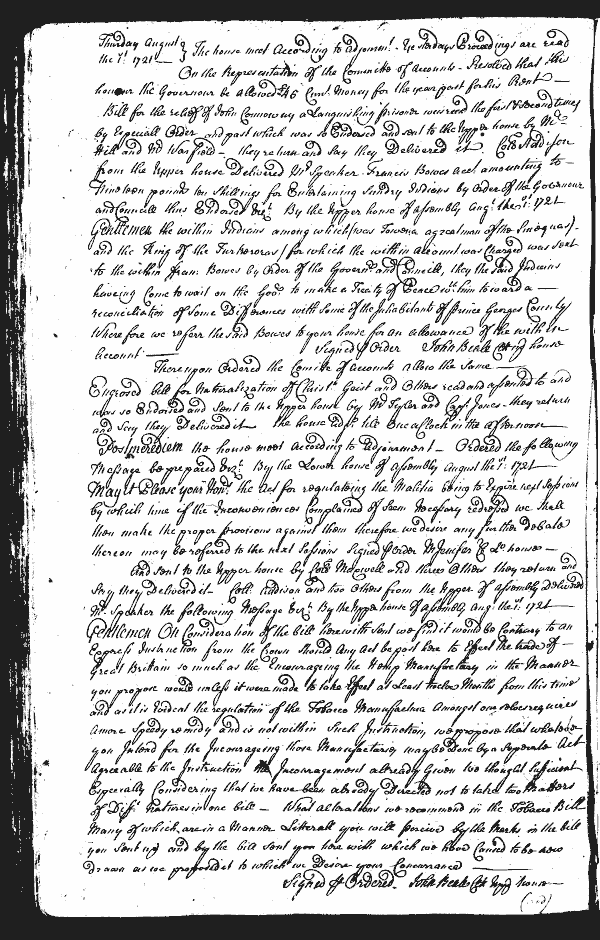 Thursday August }
the 1st. 1721 — } The house meet According to adjournmt. Yesterdays Proceedings are read
On the Representation of the Committe of Accounts - Resolved that this
honour the Governour be allowed Curr. Money for the year past for his Rent —
Bill for the relief of John Connoway a Languishing prisoner was read the first & second times
by Especiall Order and past which was so Endorsed and sent to the Upper house by Mr.
Hill and Mr. Warfield — they return and say they Delivered it Coll Addison
from the Upper house Delivered Mr. Speaker Francis Bowes acct amounting to —
Nineteen pounds ten shillings for Entertaining Sundry Indians by Order of the Governour
and Councill thus Endorsed vizt. By the Upper house of Assembly Augt. the 1st. 1721
Gentlemen the within Indians among which was a great man of the
and the King of the for which the within account was Charged was sent
to the within Fran: Bowes by Order of the Governr. and Councill, they the said Indians
haveing Come to wait on the Govr. to make a Treaty of Peace wth. him toward a —
reconciliation of Some Differences with Some of the Inhabitants of Prince Georges County
Wherefore we referr the said Bowes to your house for an allowance of the within
Account — Signed p Order John Beale Clk upp house
Thereupon Ordered the Comitte of Accounts allow the Same —
Engrosed bill for Naturalization of Christr. Geist and Others read and assented to and
was so Endorsed and Sent to the Upper house by Mr. Tyler and Capt Jones - they return
and Say they Delivered it the house adjst. till One a Clock in the afternoon
Post Meridiem the house meet According to Adjournment — Ordered the following
Message be prepared vizt. By the Lower house of Assembly August the 1st. 1721
May it Please your Honrs. the Act for regulateing the Malitia being to Expire next Sessions
by which time if the Inconveniences Complained of Seem Necessary redressed we shall
then make the proper provisions against them therefore we desire any further Debate
thereon may be referred to the next Sessions Signed p Order M Jenifer Cl Lo house —
And sent to the Upper house by Coll Maxwell and three Others they return and
Say they Delivered it — Coll. Addison and two Others from the Upper of Assembly Delivered
Mr. Speaker the following Message vizt. By the Upper house of Assembly Augt. the 1st. 1721
Gentlemen On Consideration of the bill herewith sent we find it would be Contrary to an
Express Instruction from the Crown Should Any Act be past here to Effect the trade of —
Great Brittain so much as the Encourageing the Hemp Manufactury in the Manner
you propose would unless it were made to take Effect at Least twelve Months from this time
and as it is Evident the regulation of the Tobacco Manufactua Amongst our selves requires
A more Speedy remedy and is not within Such Instruction, we propose that whatever
you Intend for the Incourageing those Manufacturies may be Done by a Seperate Act
Agreeable to the Instruction the Incouragement allready Given we thought Sufficient
Especially Considering that we have been already Directed not to take two Matters
of Difft. Natures in one bill — What alterations we recommend in the Tobacco Bill
Many of which are in a Manner Litterall you will perceive by the Marks in the bill
you Sent up and by the bill Sent you here with which we have Caused to be now
Drawn as we proposed to which we Desire your Concurrance —
Signed p Ordered. John Beale Clk upp house
(and)